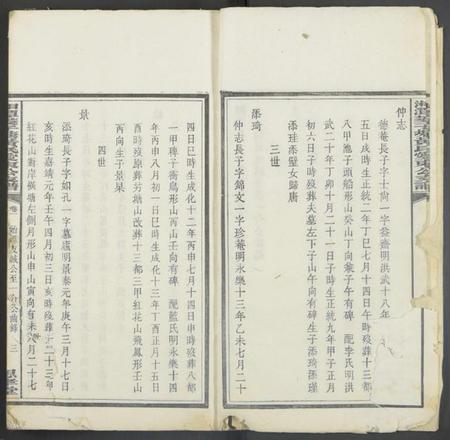 仲志
德菴長子字士尚一字益齋明洪武十八年
五日戌時生正統二年丁巳七月十四日午時歿葬十三都
八甲池子頭船形山癸山丁向兼子午有碑 配李氏明洪
武二十年丁卯十月二十一日子時生正統九年甲子正月
初六日子時歿葬夫墓左下子山午向有碑生子添琦添瑾
添珪添璧女歸唐
三世
添琦
仲志長子字錦文一字珍菴明永樂十三年乙未七月二十
四日巳時生成化十二年丙申七月十四日申時歿葬八都
一甲稗子衝鳥形山丙山壬向有碑 配藍氏明永樂十四
年丙申八月初一日巳時生成化十三年丁酉正月十五日
酉時歿原葬芳塘山改葬十三都三甲紅花山飛鳳形壬山
丙向生子景杲
四世
景
添琦長子字如孔一字墓廬明景泰元年庚午三月十七日
亥時生嘉靖元年壬午四月初三日亥時歿葬二十三都
紅花山對岸橫塘左側月形山申山寅向有 六月二十七
三